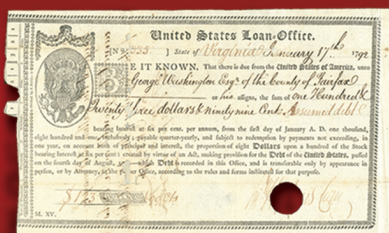 United States Loan-Office.
[No 333 ] State of Virginia January 17th 1792
BE IT KNOWN, That there is due from the United States of America, unto
George Washington Esqr. of the County of Fairfax
or his assigns, the sum of One Hundred &
Twenty three dollars & ninety nine Cents Assumed debt
bearing interest at six per cent. per annum, from the first day of January A. D. one thousand,
eight hundred and one, inclusively, payable quarter-yearly, and subject to redemption by payments not exceeding, in
one year, on account both of principal and interest, the proportion of eight Dollars upon a hundred of the Stock
bearing interest at six per cent. created by virtue of an Act, making provision for the Debt of the United States, passed
on the fourth day of August, Debt is recorded in this Office, and is transferable only by appearance in
person, or by Attorney, at the proper Office, according to the rules and forms instituted for that purpose.
M. XV.